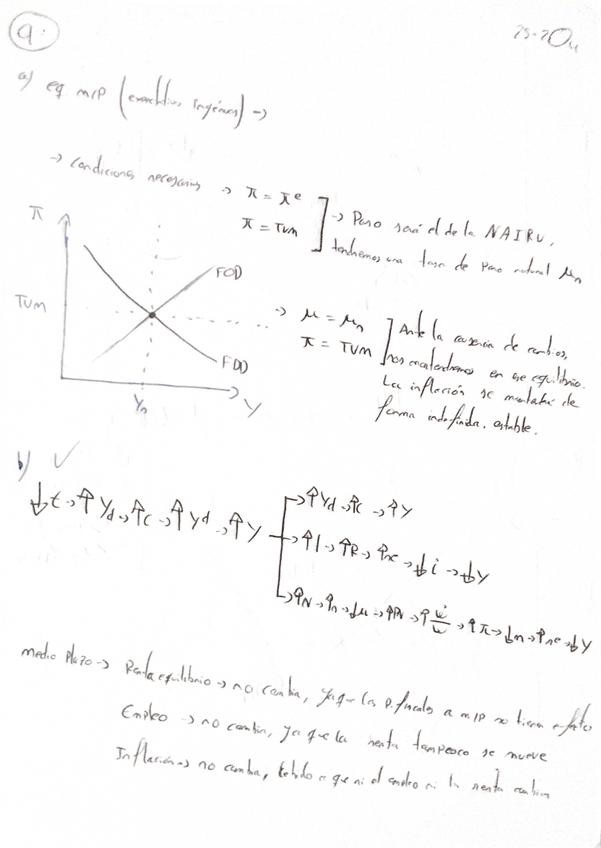 9.
a) eq M/P (expectativas ingénuas) →
→ Condiciones necesarias → π = πe
π = TUM
→ Paro será el de la NAIRU,
tendremos una tasa de paro natural μn
π
TUM
FOD
FDD
Yn
Y
→ μ = μn
π = TUM
Ante la ausencia de cambios,
nos mantendremos en ese equilibrio.
La inflación se mantendrá de
forma indefinida, estable.
b) ✓
↓t → ↑Yd → ↑C → ↑Yd → ↑Y
→ ↑Yd → ↑C → ↑Y
→ ↑l → ↑R → ↑ne → ↓i → ↓Y
→ ↑N → ↑n → ↓μ → ↑PN → ↑ẇ/w → ↑π → ↓m → ↑ne → ↓Y
medio plazo → Renta equilibrio → no cambia, ya que las P. fiscales a M/P no tienen efectos
Empleo → no cambia, ya que la renta tampoco se mueve
Inflación → no cambia, debido a que ni el empleo ni la renta cambian